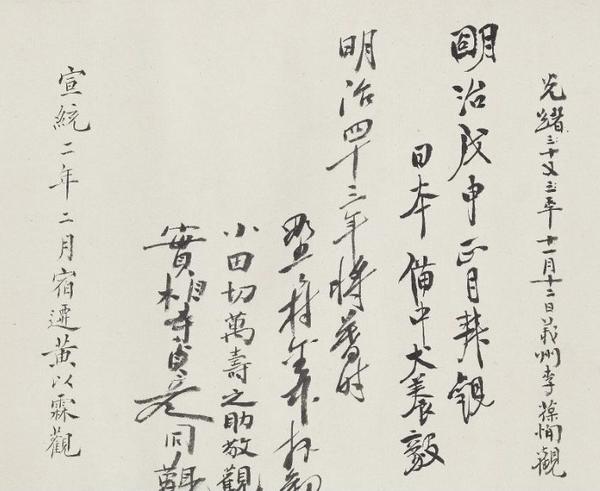 光緒三十又三年十一月十二日義州李葆恂觀
朙治戊申正月拜觀
日本備中犬養毅
明治四十三年將暮時
小田切萬壽之助敬觀
實相寺貞彥同觀
宣統二年二月宿遷黃以霖觀